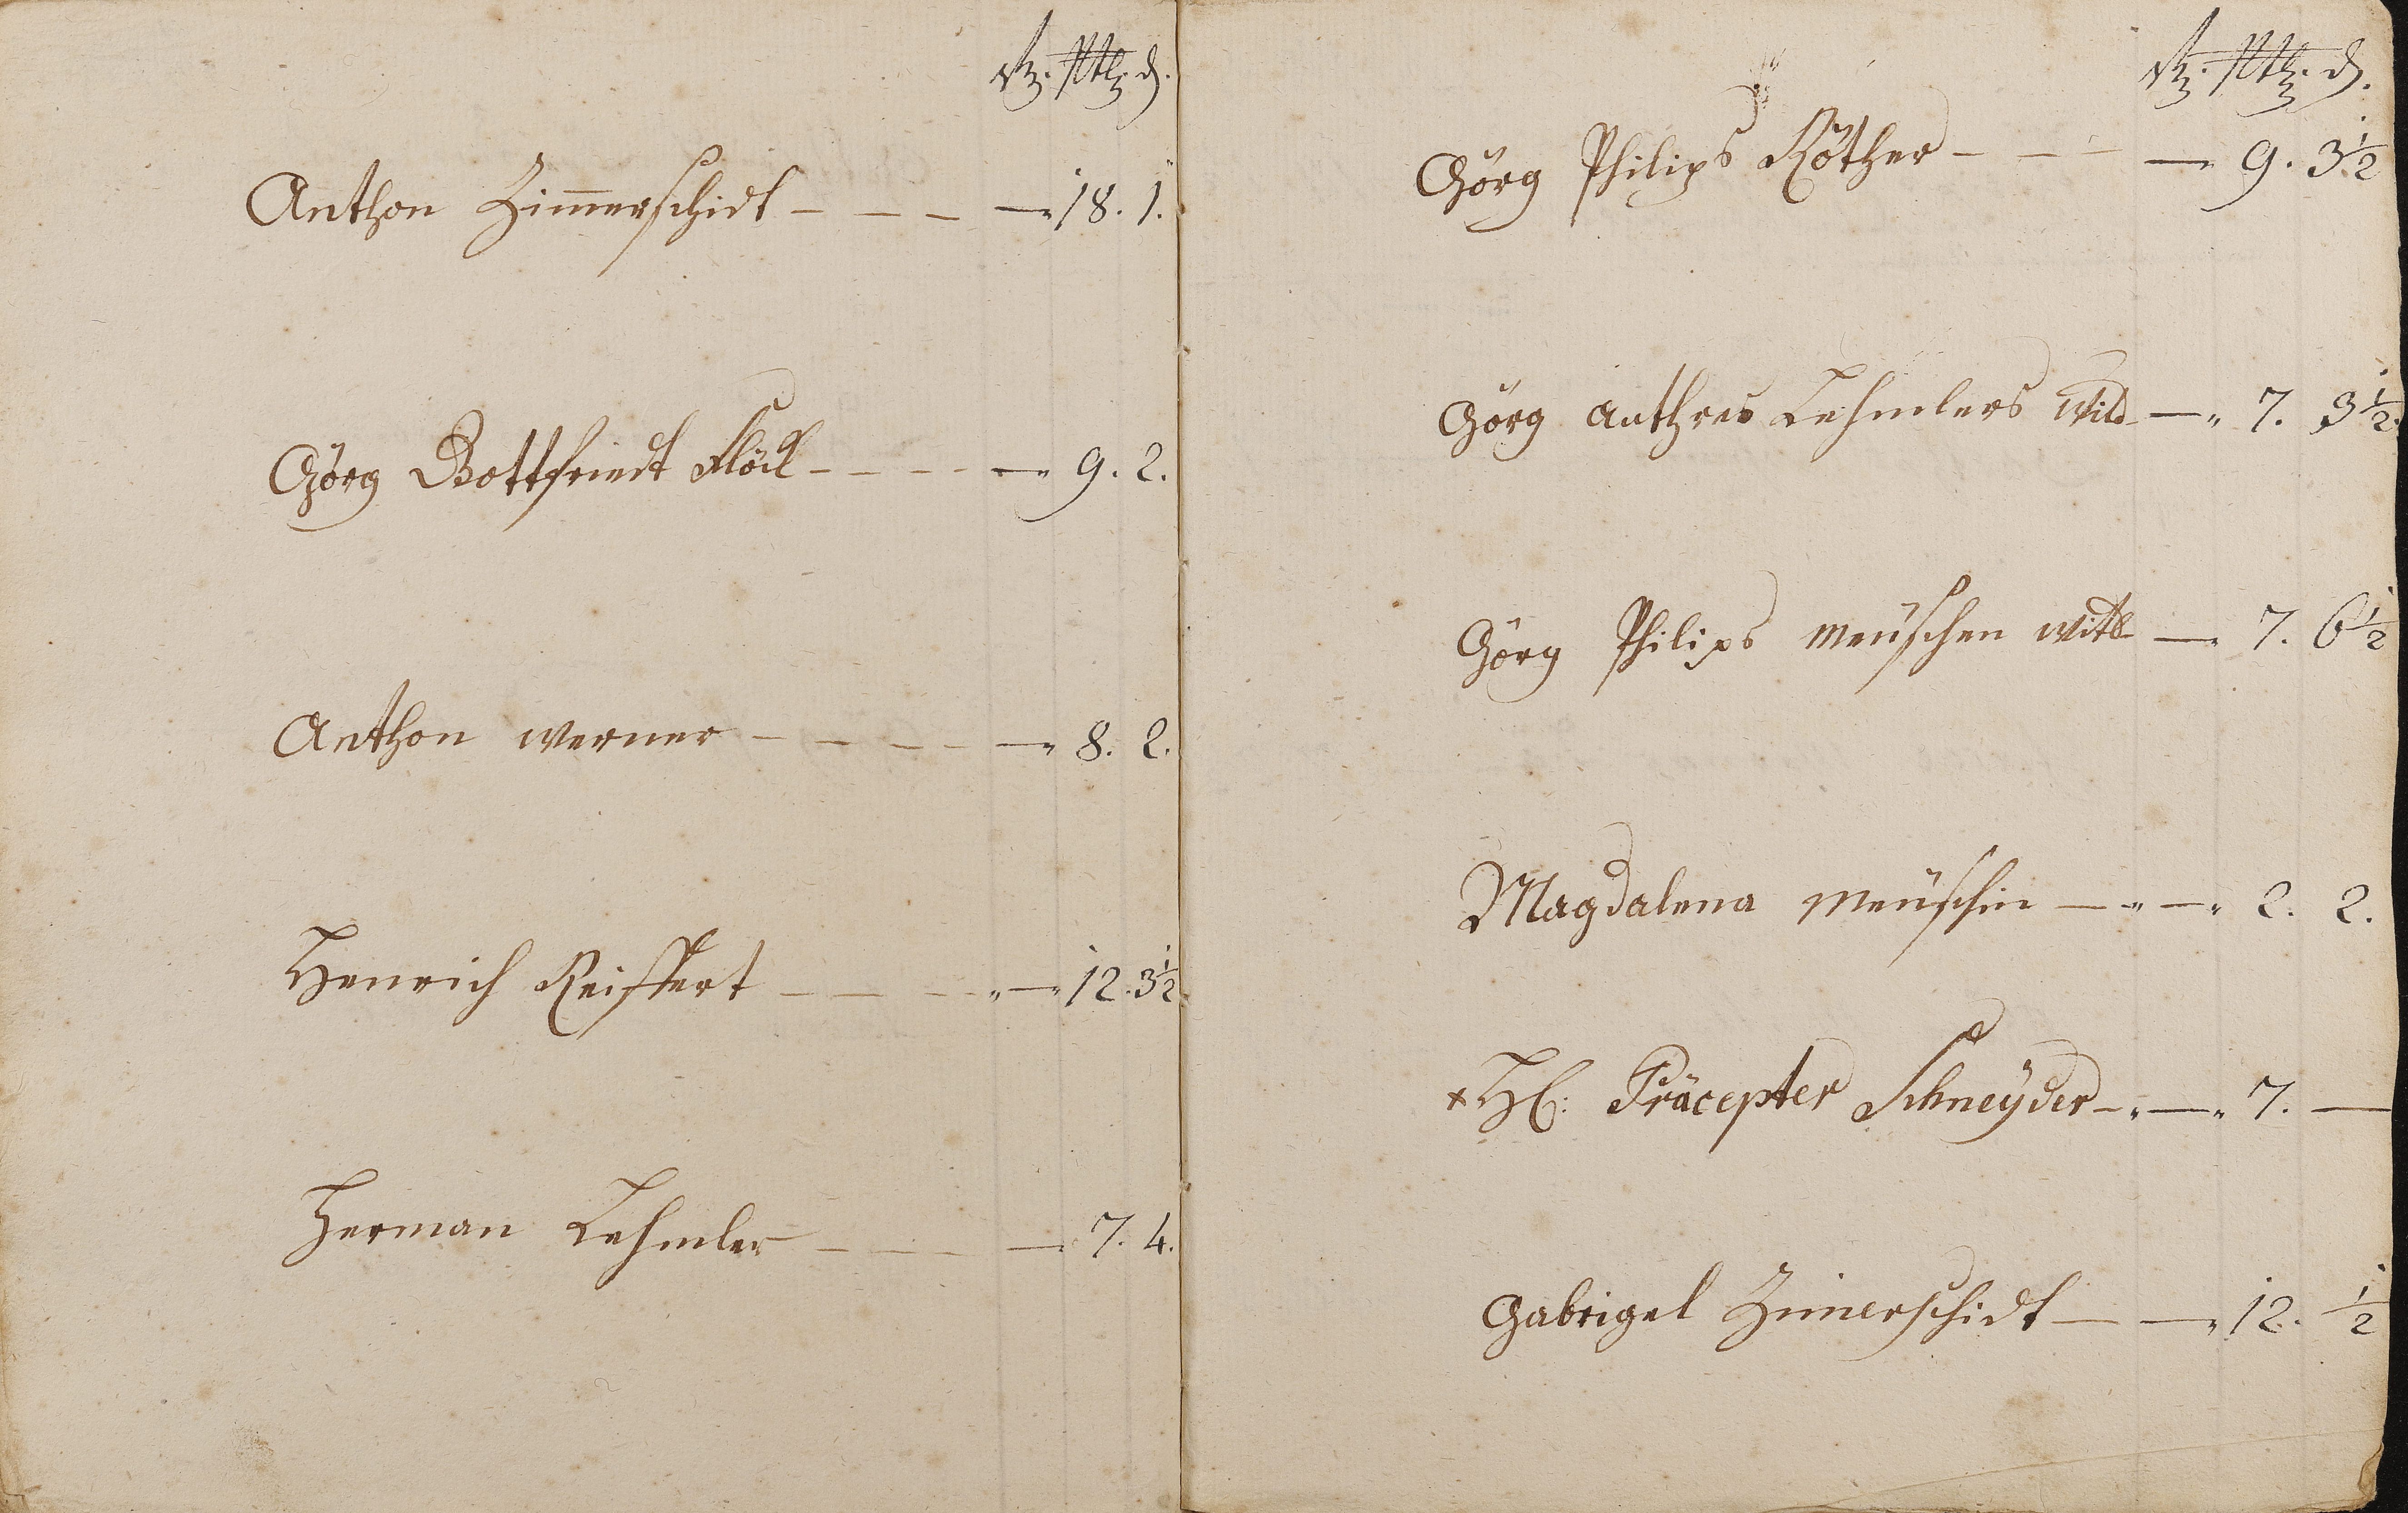 Anthon Zimerschidt - - - - 18. 1.
Görg Gottfriedt Flöck - - - - 9. 2.
Anthon Werner - - - - 8. 2.
Henrich Reiffert - - - - 12. 3 1/2
Herman Lehmler - - - - 7. 4.
Görg Philips Röther - - - - 9. 3 1/2
Görg Anthres Lehmlers Witb - 7. 3 1/2.
Görg Philips Meüschen Witb - 7. 6 1/2
Magdalena Meüschin - - 2. 2.
Präcepter Schneÿder - - 7. -
Gabrigel Zimerschidt - - 12. 1/2